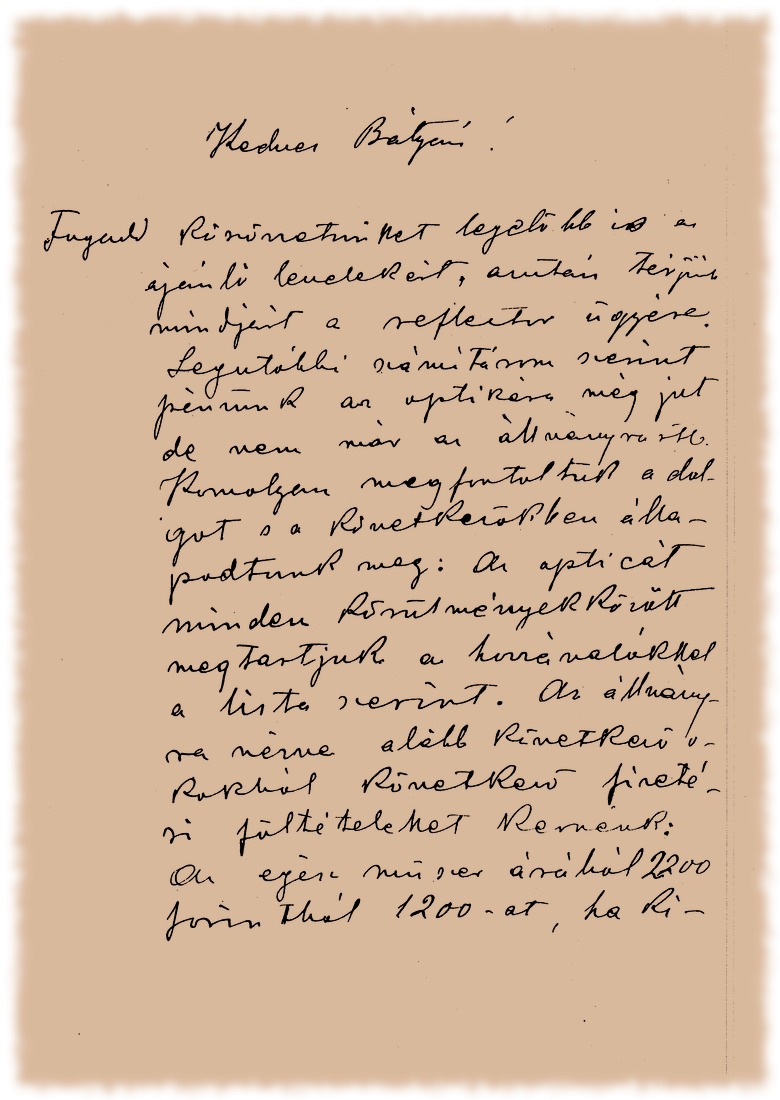 Kedves Bátyám!
Fogadd köszönetünket legelőbb is az
ajánló levelekért, azután térjünk
mindjárt a reflector ügyére.
Legutóbbi számításom szerint
pénzünk az optikára még jut
de nem már az állványra stb.
Komolyan megfontoltuk a dol-
got s a következőkben álla-
podtunk meg: Az opticát
minden körülmények között
megtartjuk a hozzávalókkal
a lista szerint. Az állvány-
ra nézve alább következő o-
kokból következő fizeté-
si föltételeket kérnénk:
Az egész műszer árából 2200
forintból 1200-at, ha ki-